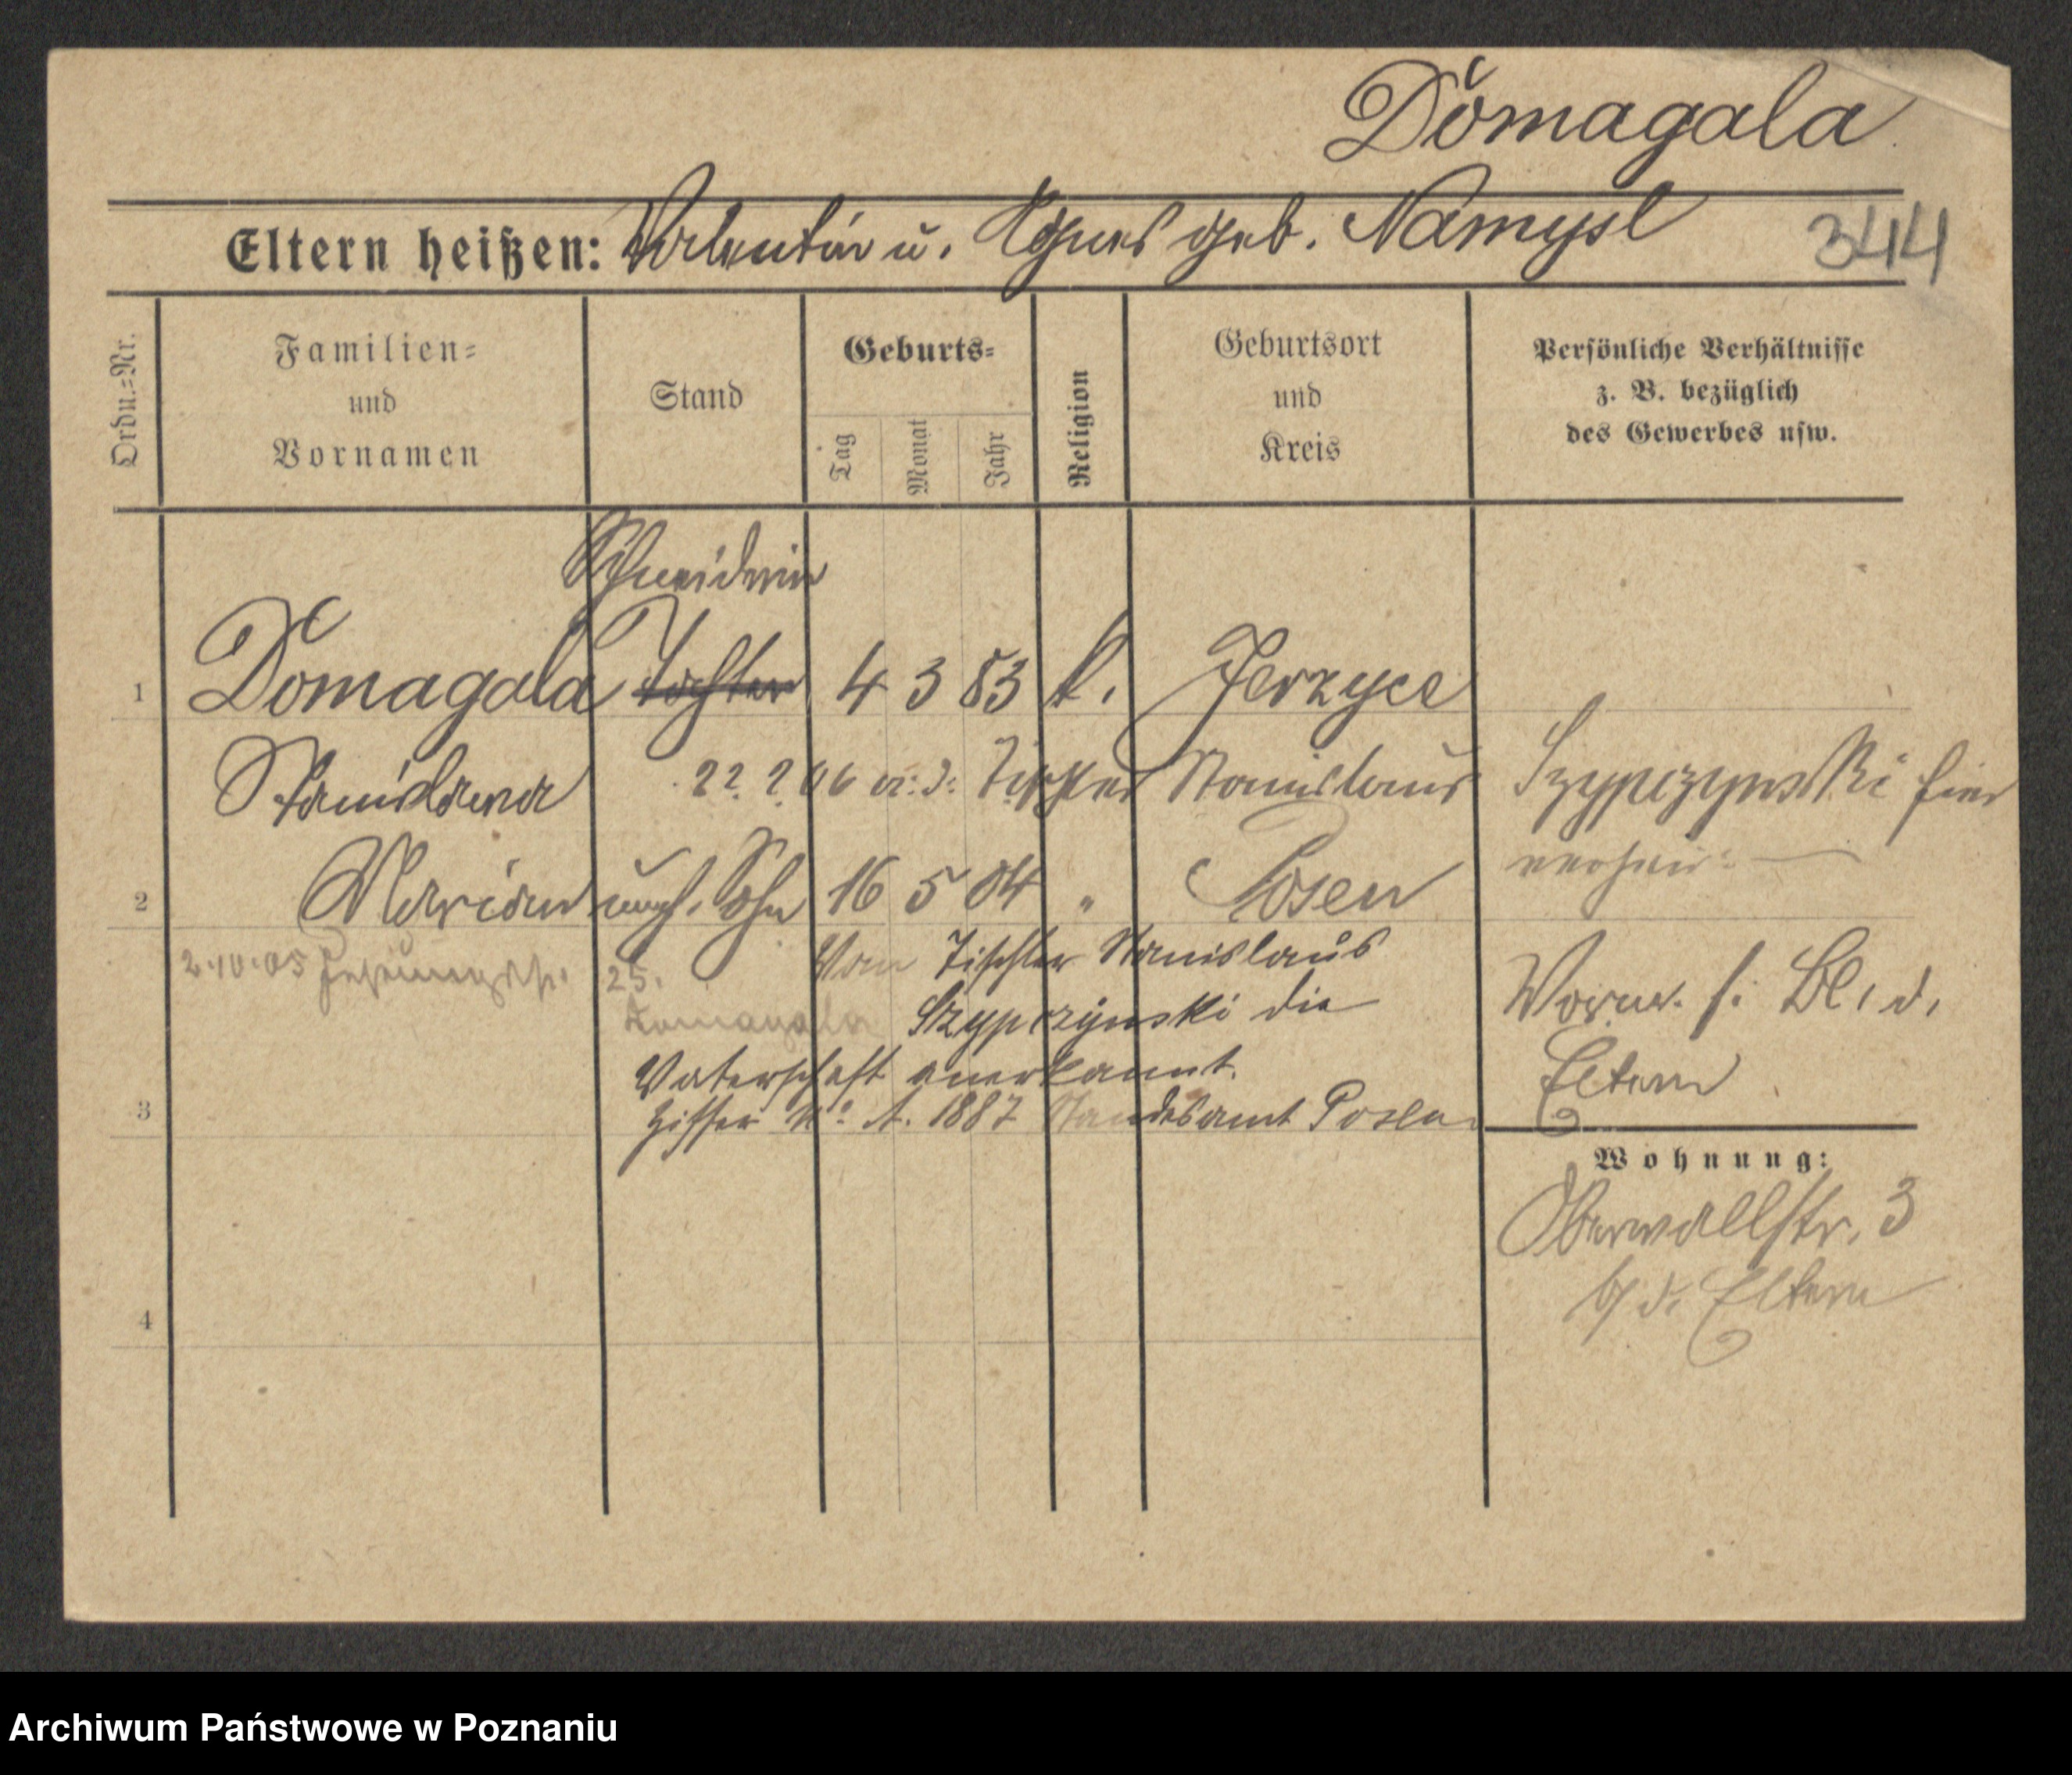 Domagala
Eltern heißen: Valentin u. Agnes geb. Namysl 344
Ordn.=Nr.
Familien= und Vornamen
Stand
Geburts=
Tag Monat Jahr
Religion
Geburtsort und Kreis
Persönliche Verhältnisse z. B. bezüglich des Gewerbes usw.
Schneiderin
1 Domagala Tochter 4 3 83 k. Jerzyce
Stanislawa 22. 2. 06 a. d. Tischler Stanislaus Szypczynski hier
verheir.
2 Marian unehl. Sohn 16 5 04 " Posen
2.10.05 25.
Vom Tischler Stanislaus
Domagala Szypczynski die
Vaterschaft anerkannt.
3 Ziffer No A. 1887 Standesamt Posen
Vorw. s. Bl. d.
Eltern
Wohnung:
Oberwallstr. 3
b/ d. Eltern
4
Archiwum Państwowe w Poznaniu